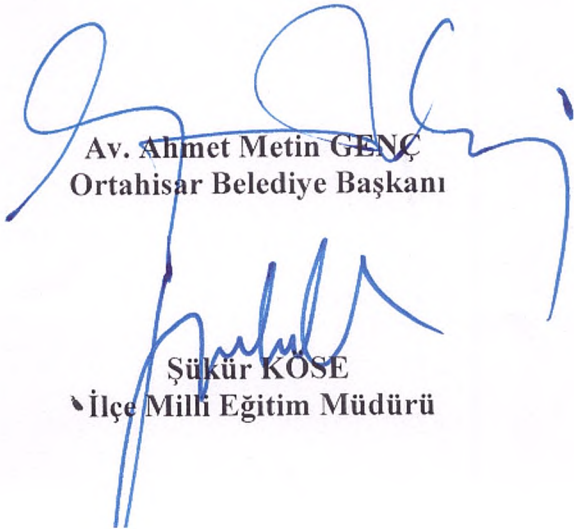 Av. Ahmet Metin GENÇ
Ortahisar Belediye Başkanı
Şükür KÖSE
İlçe Milli Eğitim Müdürü